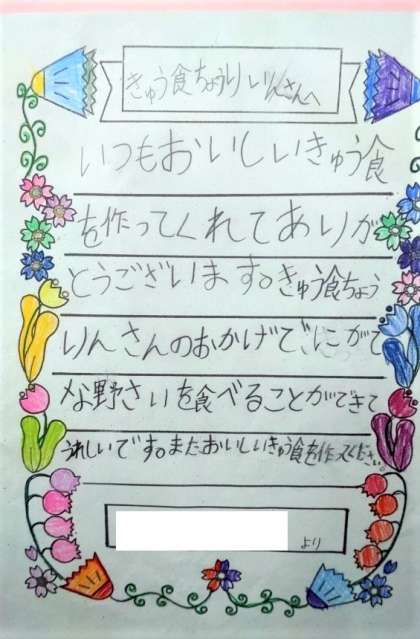 きゅう食ちょうりいんさんへ
いつもおいしいきゅう食
を作ってくれてありが
とうございます。きゅう食ちょう
りんさんのおかげでにがて
な野さいを食べることができて
うれしいです。またおいしいきゅう食を作ってください。
より